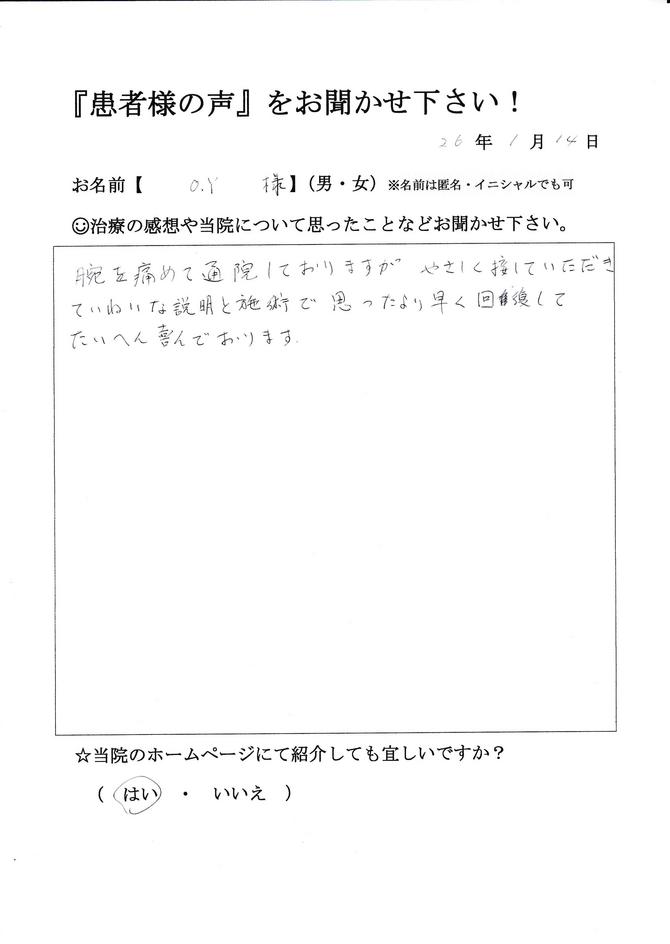 『患者様の声』をお聞かせ下さい！
26年1月14日
お名前【 O.Y 様】（男・女）※名前は匿名・イニシャルでも可
☺治療の感想や当院について思ったことなどお聞かせ下さい。
腕を痛めて通院しておりますが やさしく接していただき
ていねいな説明と施術で思ったより早く回復して
たいへん喜んでおります。
☆当院のホームページにて紹介しても宜しいですか？
（ はい ・ いいえ ）